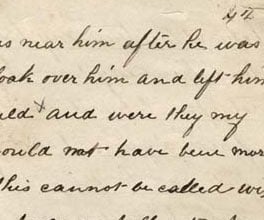 44
as near him after he was
look over him and left him
uld x and were they my
would not have been mor
this cannot be called wi